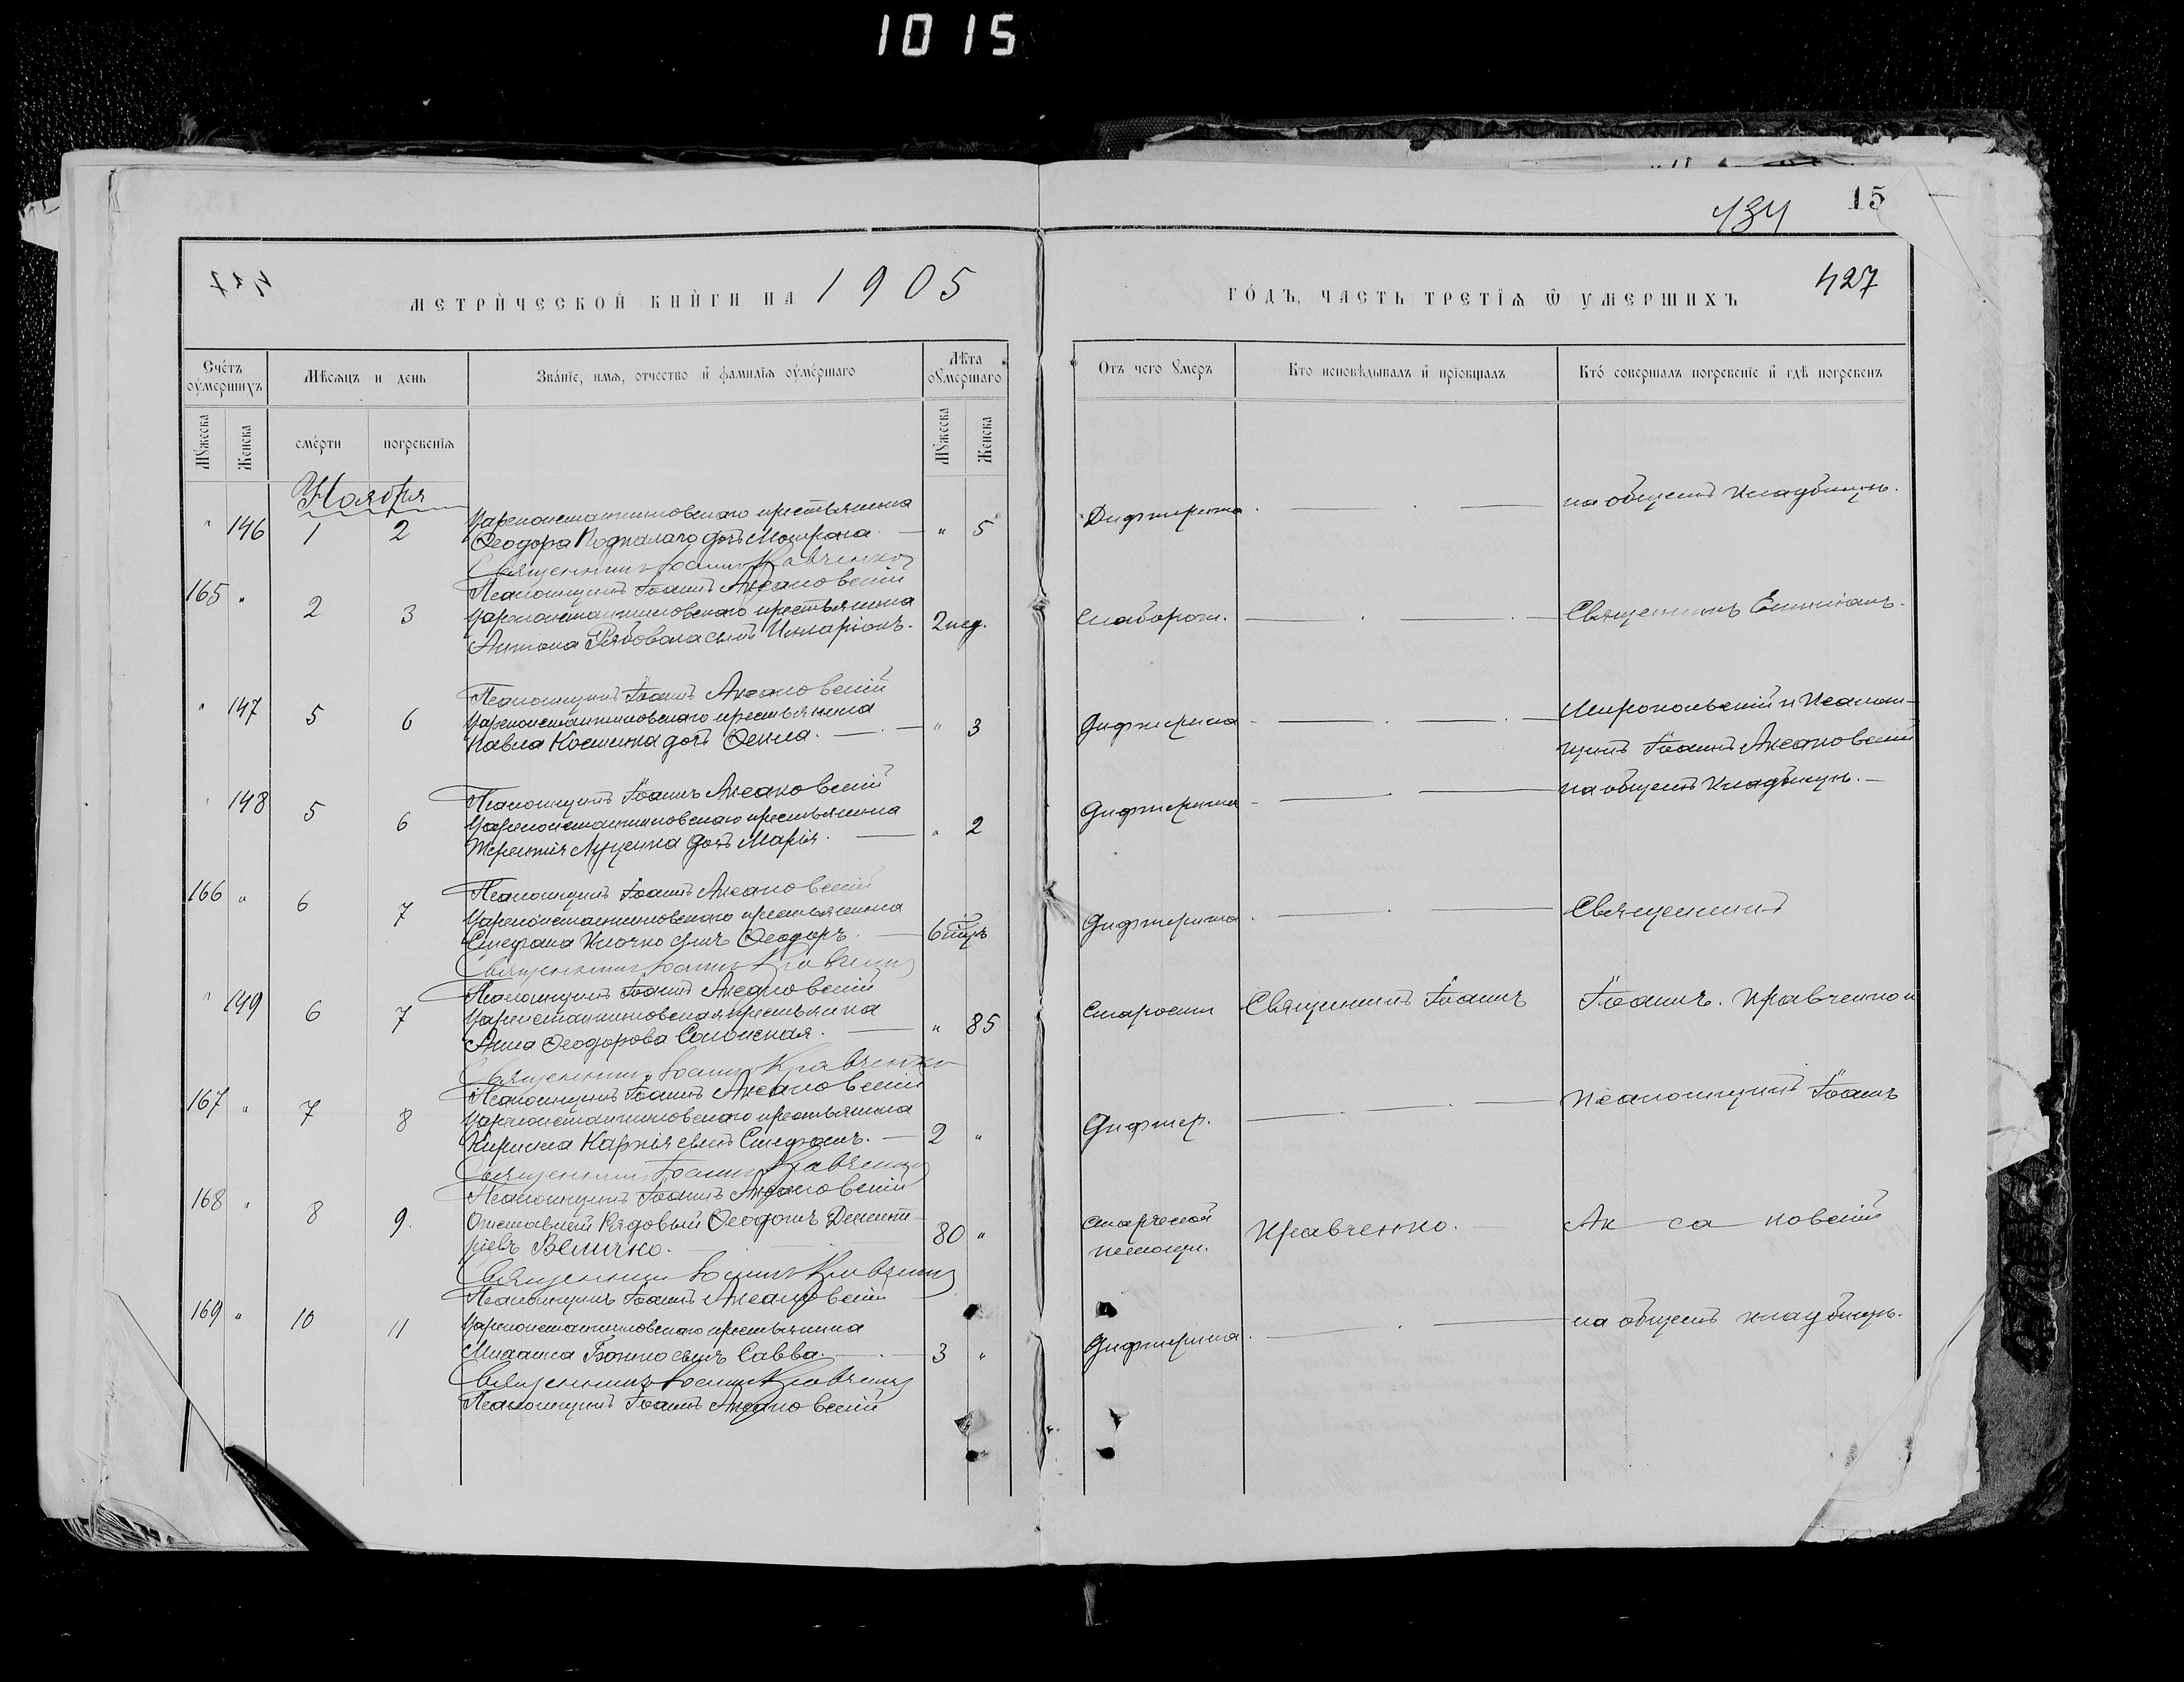 1015
15
434
427
МЕТРИ́ЧЕСКОЙ КНИ́ГИ НА 1905
ГО́ДЪ, ЧАСТЬ ТРЕТІѦ Ѡ УМЕРШИХЪ
427
Сче́тъ оуме́ршихъ
Мѣсѧцъ и день
Зва́ніе, имѧ, отчество и фамиліѧ оуме́ршаго
Лѣта оумершаго
Отъ чего умеръ
Кто исповѣдывалъ и пріобщалъ
Кто́ совершалъ погребеніе и гдѣ погребенъ
Мужеска
Женска
сме́рти
погребеніѧ
Мужеска
Женска
Ноября
" 146 1 2 Цареконстантиновскаго крестьянина
Ѳеодора Подпалаго дочь Матрона. " 5 Дифтерита на общемъ кладбищѣ.
Священникъ Іоаннъ Кравченко
Псаломщикъ Іоаннъ Аксановскій
165 " 2 3 Цареконстантиновскаго крестьянина
Антона Рябовола сынъ Иларіонъ. 2 нед. Слаборожд. Священникъ Епиніанъ
Псаломщикъ Іоаннъ Аксановскій
" 147 5 6 Цареконстантиновскаго крестьянина
Павла Костенка дочь Ѳекла. " 3 Дифтерита Миропольскій и Псалом-
щикъ Іоаннъ Аксановскій
на общемъ кладбищѣ.
Псаломщикъ Іоаннъ Аксановскій
" 148 5 6 Цареконстантиновскаго крестьянина
Терентія Луценка дочь Марія. " 2 Дифтерита
Псаломщикъ Іоаннъ Аксановскій
166 " 6 7 Цареконстантиновскаго крестьянина
Стефана Клочко сынъ Ѳеодоръ. 6 Дифтерита Священникъ
Священникъ Іоаннъ Кравченко
Псаломщикъ Іоаннъ Аксановскій
" 149 6 7 Цареконстантиновская крестьянка
Анна Ѳеодорова Солонская. " 85 Старости Священникъ Іоаннъ Іоаннъ Кравченко и
Священникъ Іоаннъ Кравченко
Псаломщикъ Іоаннъ Аксановскій
167 " 7 8 Цареконстантиновскаго крестьянина
Кирилла Карпія сынъ Стефанъ. 2 " Дифтер. Псаломщикъ Іоаннъ
Священникъ Іоаннъ Кравченко
Псаломщикъ Іоаннъ Аксановскій
168 " 8 9. Отставной Рядовый Ѳеодотъ Димит-
ріевъ Величко. 80 " Старческой немощи. Кравченко. Ак са новскій
Священникъ Іоаннъ Кравченко
Псаломщикъ Іоаннъ Аксановскій
169 " 10 11 Цареконстантиновскаго крестьянина
Михаила Божко сынъ Савва. 3 " Дифтерита. на общемъ кладбищѣ.
Священникъ Іоаннъ Кравченко
Псаломщикъ Іоаннъ Аксановскій